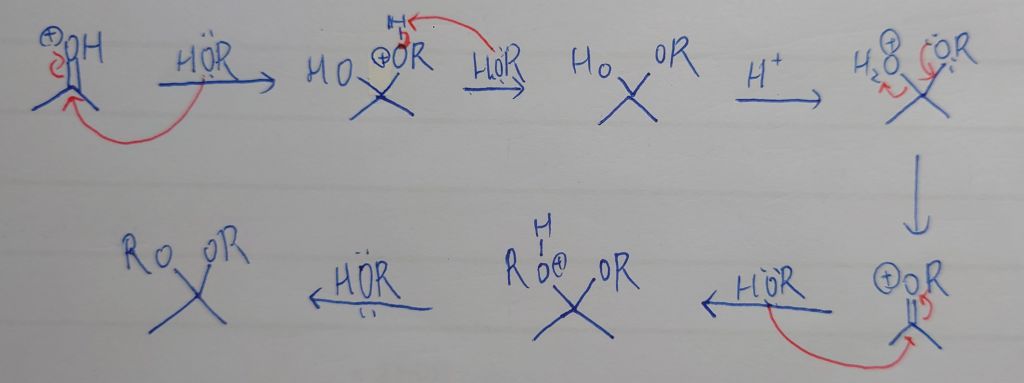 ⊕OH HÖR HO ⊕OR H HÖR HO OR H⁺ H₂O⊕ ÖR
RO OR HÖR H RO⊕ OR HÖR ⊕OR